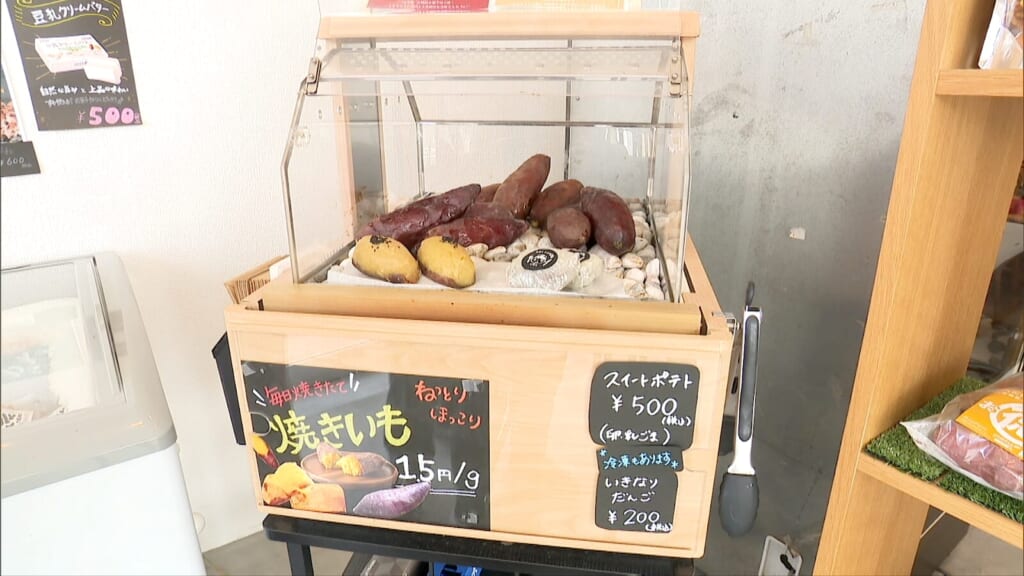 豆乳クリームバター
¥500
¥600
毎日焼きたて
焼きいも
ねっとり
ほっこり
1.5円/g
スイートポテト
¥500
(税込)
(卵・乳・ごま)
冷凍もあります
いきなり
だんご
¥200
(税込)